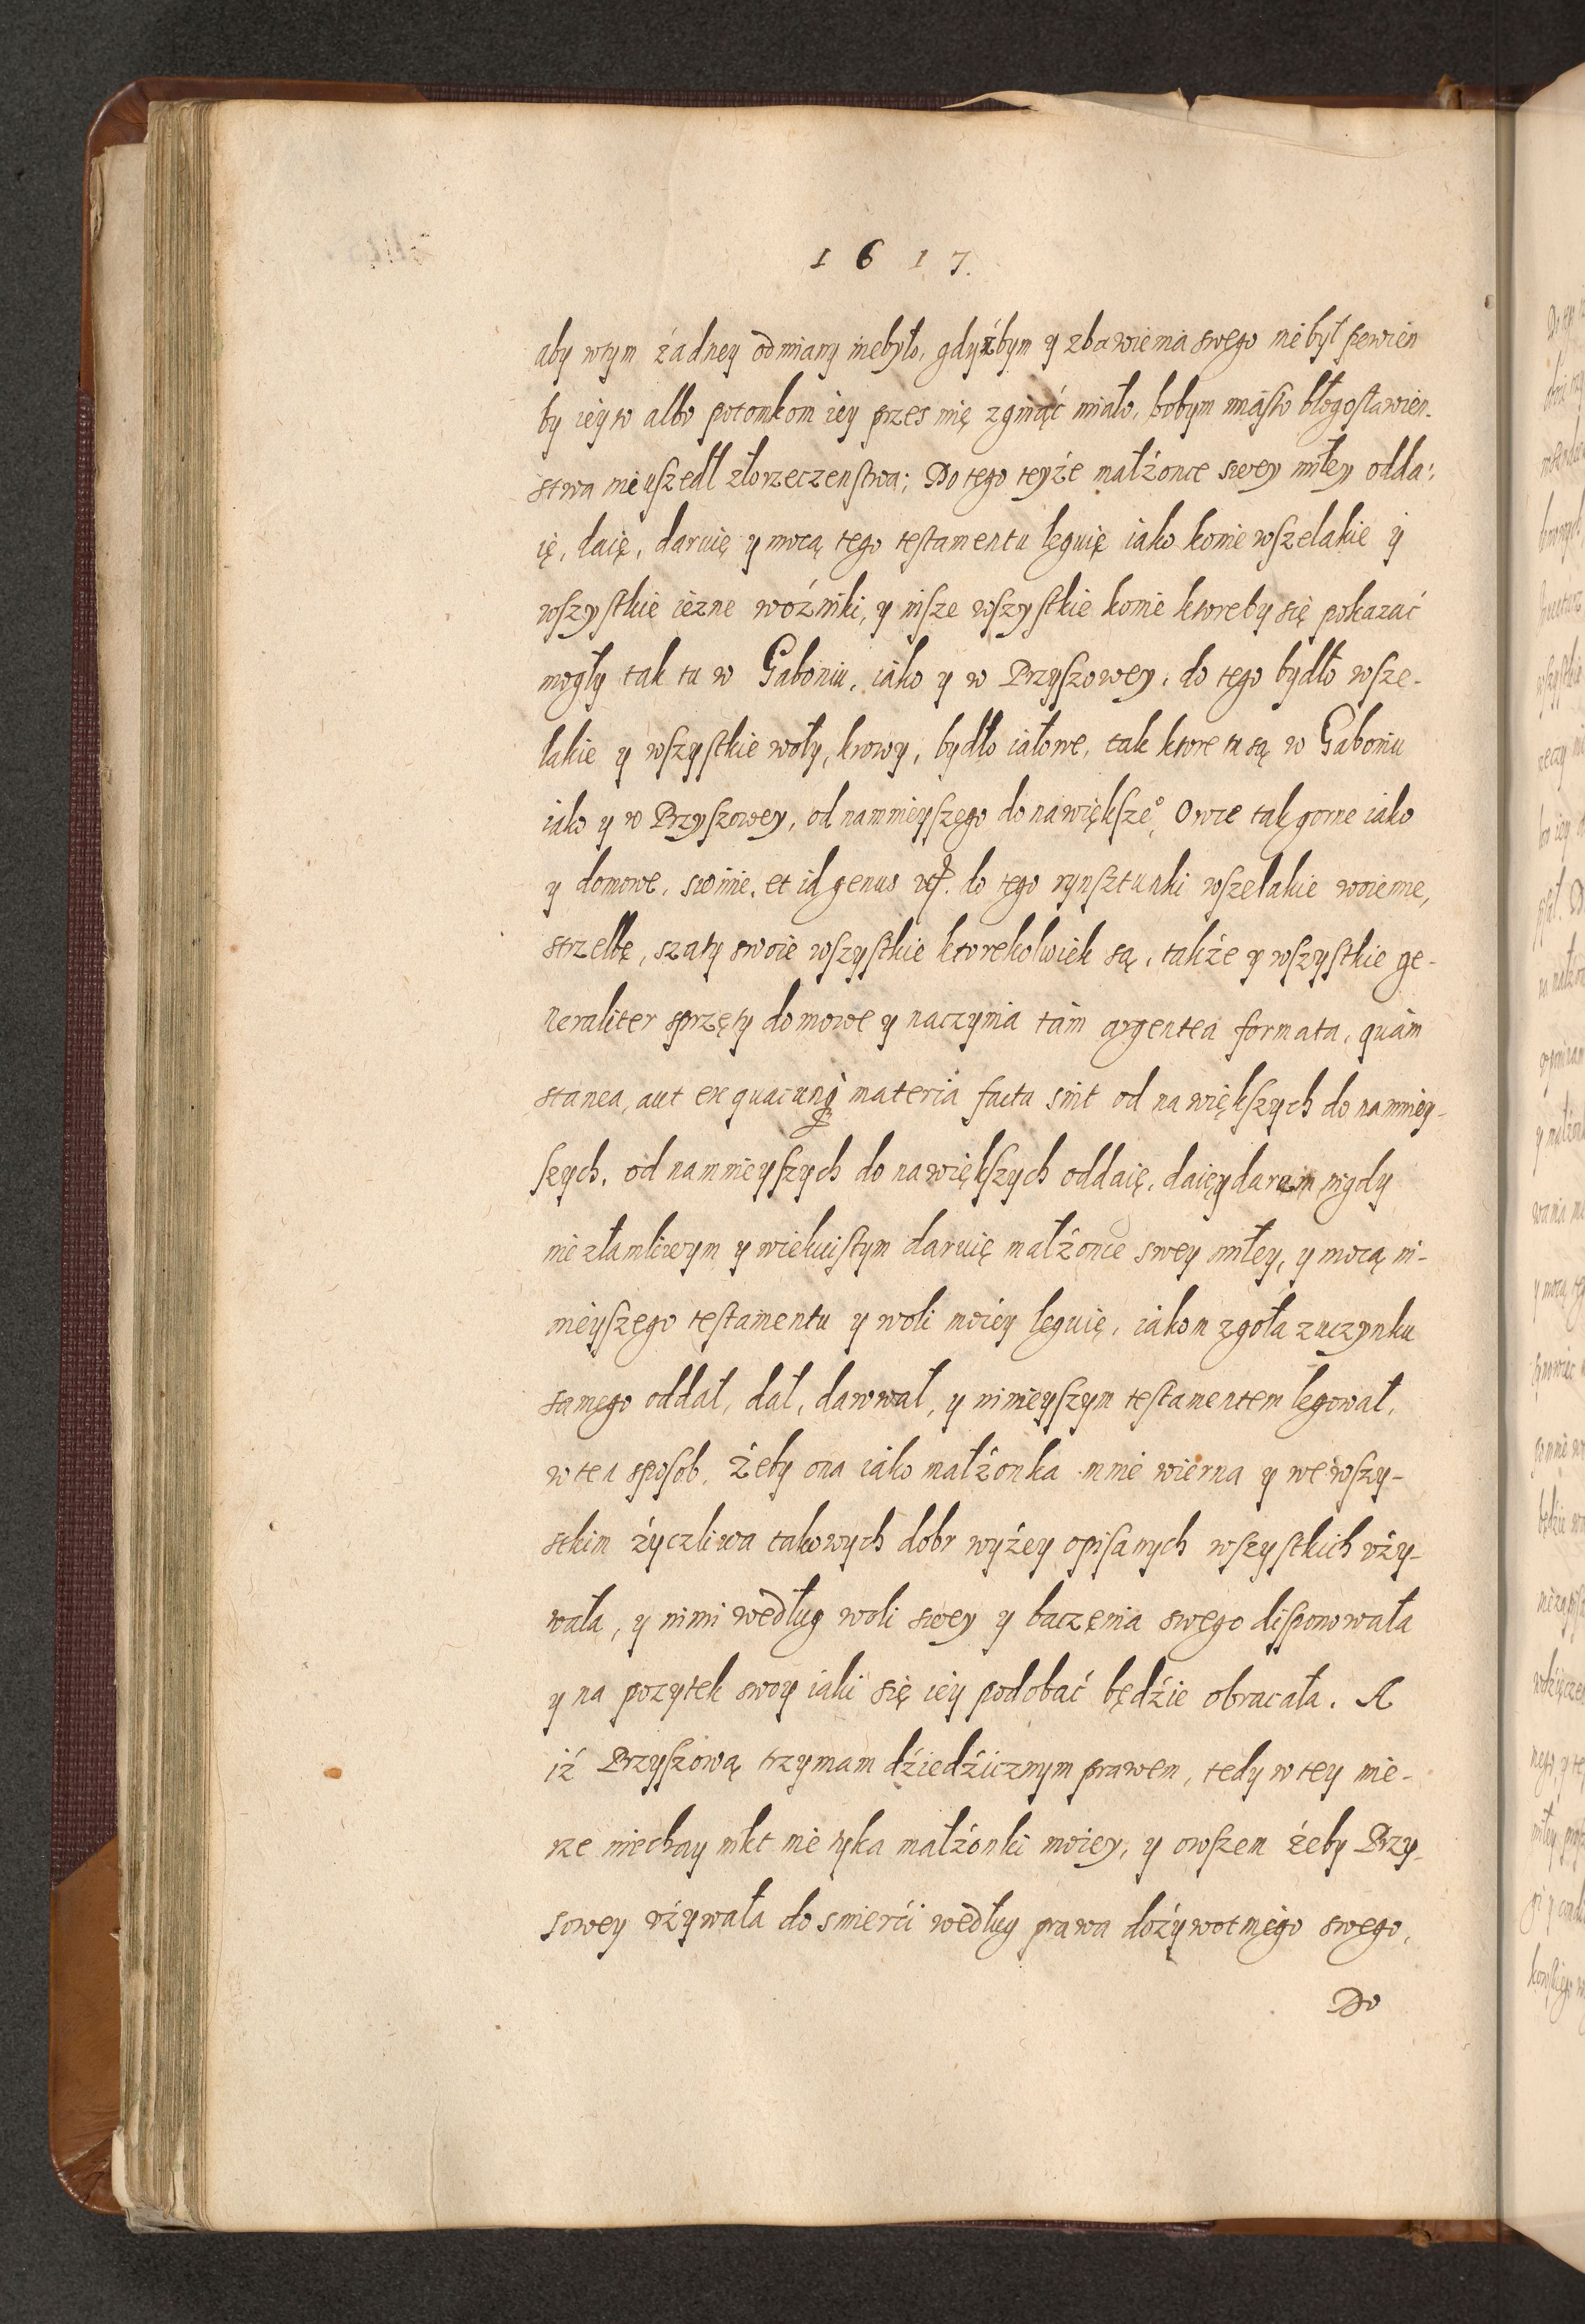 1617.
aby wtym żadney odmiany niebyło, gdyżbym y zbawienia swego niebył pewien
by ieyto albo potomkom iey przes mię zginąć miało, bobym miasto błogosławien-
stwa nieuszedł złorzeczenstwa; Do tego teyże małżonce swey miłey odda:
ię, daię, daruię y mocą tego testamentu leguię iako konie wszelakie y
wszystkie iezne woźniki, y insze wszystkie konie ktoreby się pokazać
mogły tak tu w Gaboniu, iako y w Przyszowey, do tego bydło wsze-
lakie y wszystkie woły, krowy, bydło iałowe, tak ktore tu są w Gaboniu
iako y w Przyszowey, od namnieyszego do nawiększe°, Owce tak gorne iako
y domowe, swinie, et id genus do tego rynsztunki wszelakie woienne,
strzelbę, szaty swoie wszystkie ktorekolwiek są, także y wszystkie ge-
neraliter sprzęty domowe y naczynia tàm argentea formata, quàm
stanea, aut ex quacunq materia facta sint od nawiększych do namniey-
szych, od namnieyszych do nawiększych oddaię, daię y darem nigdy
niezłamliwym y wiekuistym daruię małżonce swey miłey, y mocą ni-
nieyszego testamentu y woli moiey leguię, iakom zgoła z uczynku
samego oddał, dał, darował, y ninieyszym testamentem legował,
w ten sposob, żeby ona iako małżonka mnie wierna y wewszy-
stkim życzliwa takowych dobr wyżey opisanych wszystkich vży-
wała, y nimi według woli swey y baczenia swego disponowała
y na pozytek swoy iaki się iey podobać będźie obracała. A
iż Przyszową trzymam dźiedźicznym prawem, tedy w tey mie-
rze niechay nikt nie tyka małżonki moiey, y owszem żeby Przy-
sowey vżywała do smierći według prawa dożywotniego swego,
Do